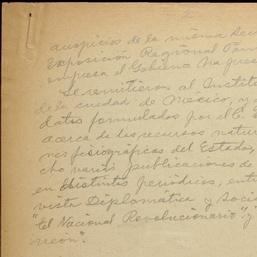 2
auspicios de la misma Secr
Exposición Regional Perm
empresa el Gobierno ha pres
Se remitieron al Institut
de la ciudad de Mexico, y a
datos formulados por el C. 
acerca de los recursos natur
nes fisiográficas del Estado,
cho varias publicaciones de
en distintos periódicos, ent
vista Diplomática y Soci
"El Nacional Revolucionario" y "
rreon".